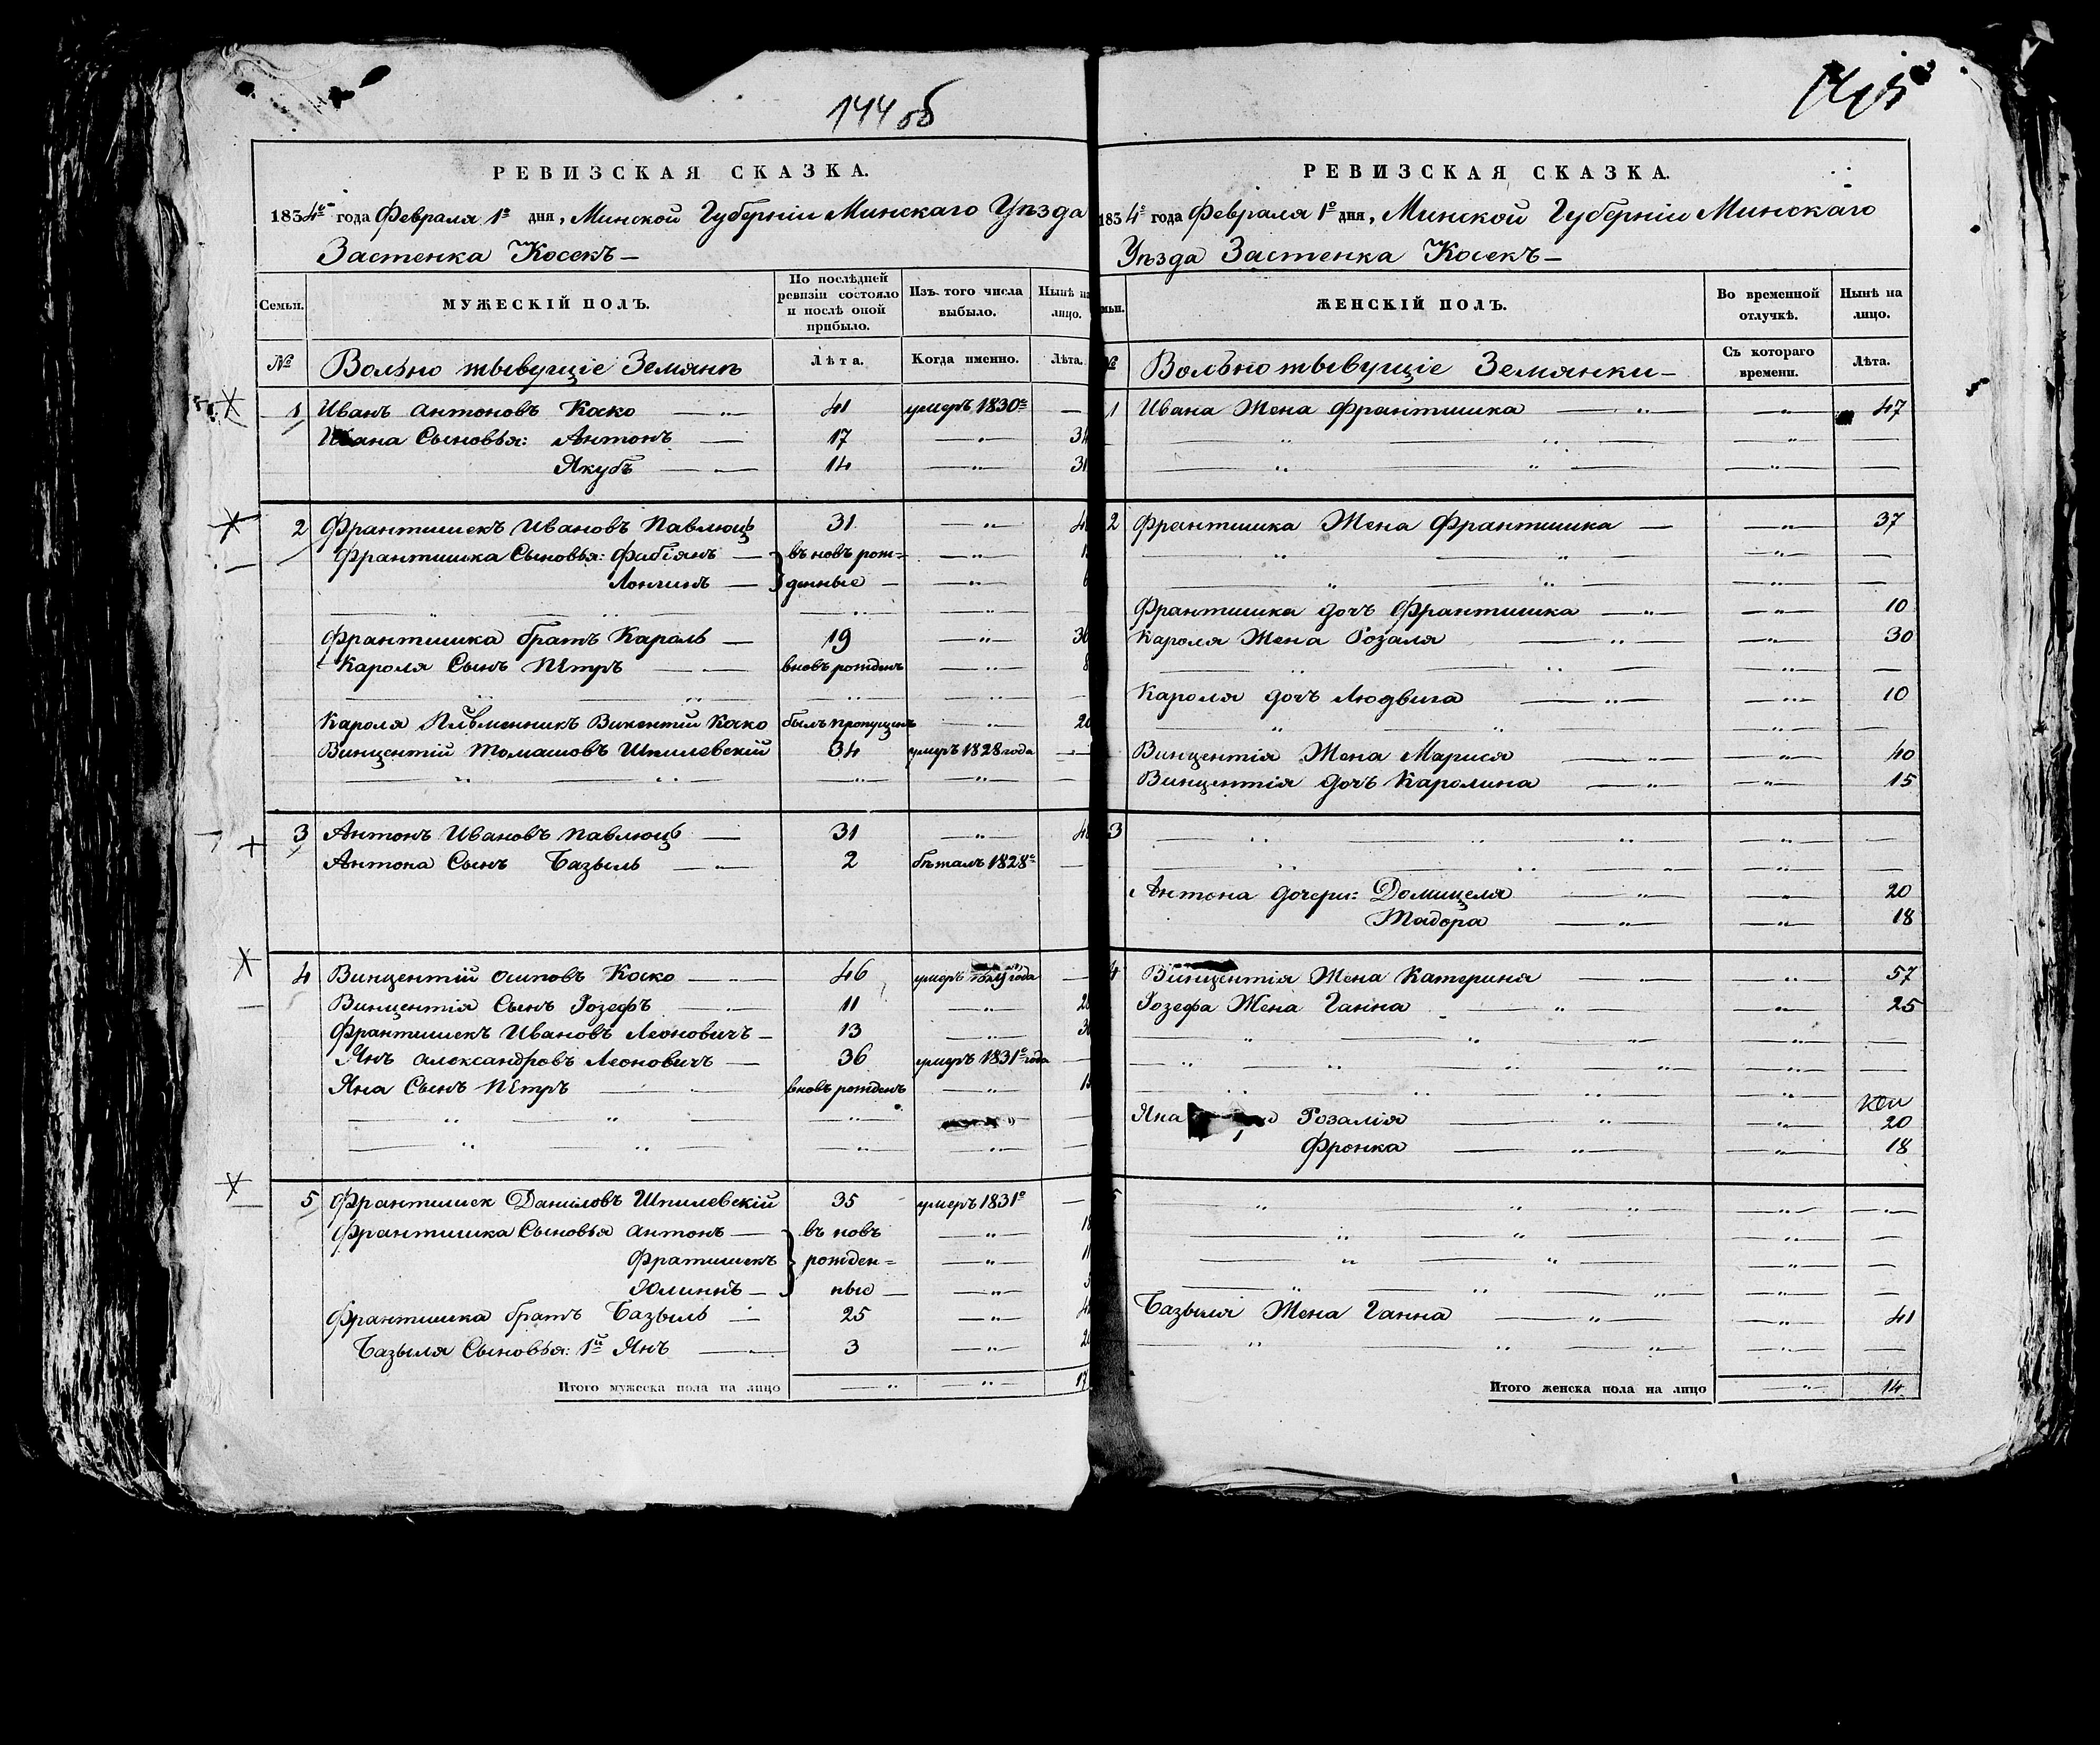 144 об
РЕВИЗСКАЯ СКАЗКА.
1834го года Февраля 1го дня, Минской Губерніи Минскаго Уѣзда
Застенка Косекъ
Семьи. МУЖЕСКІЙ ПОЛЪ. По послѣдней ревизіи состояло и послѣ оной прибыло. Изъ того числа выбыло. Нынѣ на лицо.
№ Вольно живущіе Земяне Лѣта. Когда именно. Лѣта.
1 Иванъ Антоновъ Коско 41 умеръ 1830го
Ивана Сыновья: Антонъ 17
Якубъ 14 31
2 Франтишекъ Ивановъ Павлюць 31
Франтишка Сыновья: Фабіянъ въ новь рож=
Лонгинъ денные
Франтишка братъ Кароль 19
Кароля Сынъ Пётръ вновь рожденъ 8
Кароля Племенникъ Викентій Коско былъ пропущенъ
Винцентій Томашовъ Шпилевскій 34 умеръ 1828 года
3 Антонъ Ивановъ Павлюць 31
Антона Сынъ Базыль 2 бѣжалъ 1828го
4 Винцентій Осиповъ Коско 46 умеръ года
Винцентія Сынъ Іозефъ 11
Франтишекъ Ивановъ Леоновичъ 13
Янъ Александровъ Леоновичъ 36 умеръ 1831го года
Яна Сынъ Пётръ вновь рожденъ
5 Франтишек Даниловъ Шпилевскій 35 умеръ 1831го
Франтишка Сыновья Антонъ въ новь
Фратишекъ рожден=
Юлинъ ные
Франтишка братъ Базыль 25
Базыля Сыновья: 1й Янъ 3
Итого мужеска пола на лицо 17
145
РЕВИЗСКАЯ СКАЗКА.
1834го года Февраля 1го дня, Минской Губерніи Минскаго
Уѣзда Застенка Косекъ
ЖЕНСКІЙ ПОЛЪ. Во временной отлучкѣ. Нынѣ на лицо.
№ Вольно живущіе Земянки Съ котораго времени. Лѣта.
1 Ивана Жена Франтишка 47
2 Франтишка Жена Франтишка 37
Франтишка дочь Франтишка 10
Кароля Жена Розаля 30
Кароля дочь Людвига 10
Винцентія Жена Марися 40
Винцентія дочь Каролина 15
3
Антона дочери: Домицеля 20
Тадора 18
4 Винцентія Жена Катерина 57
Іозефа Жена Ганна 25
Яна Розалія 20
Фронка 18
5
Базыля Жена Ганна 41
Итого женска пола на лицо 14